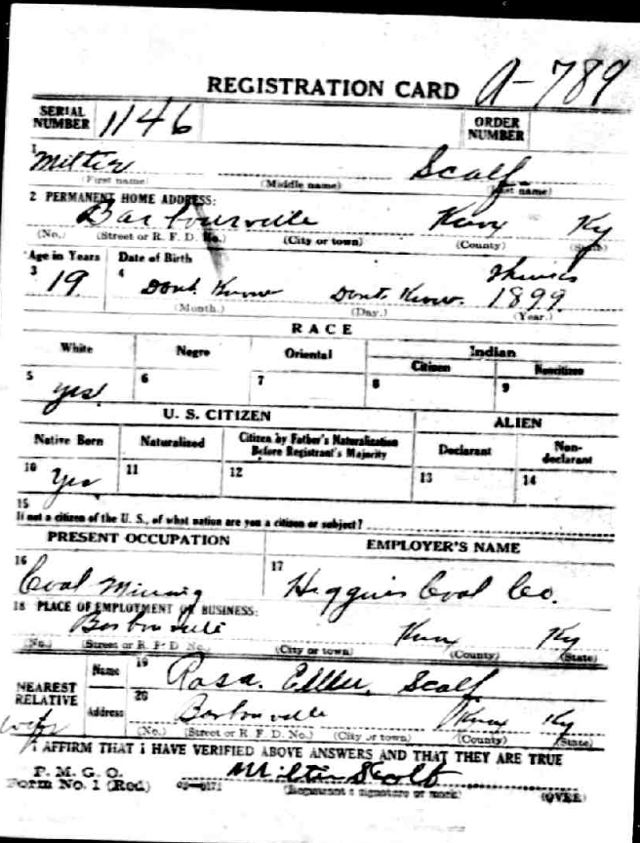 REGISTRATION CARD A-789
SERIAL NUMBER 1146 ORDER NUMBER
1 Milten Scalf
(First name) (Middle name) (Last name)
2 PERMANENT HOME ADDRESS:
Barbourville Knox Ky
(No.) (Street or R. F. D. No.) (City or town) (County) (State)
Age in Years Date of Birth
thinks
3 19 4 Dont Know Dont Know. 1899
(Month.) (Day.) (Year.)
RACE
White Negro Oriental Indian
Citizen Noncitizen
5 yes 6 7 8 9
U. S. CITIZEN ALIEN
Native Born Naturalized Citizen by Father's Naturalization Before Registrant's Majority Declarant Non-declarant
10 Yes 11 12 13 14
15
If not a citizen of the U. S., of what nation are you a citizen or subject?
PRESENT OCCUPATION EMPLOYER'S NAME
16 Coal Mining 17 Higgins Coal Co.
18 PLACE OF EMPLOYMENT OR BUSINESS:
Barbourville Knox Ky
(No.) (Street or R. F. D. No.) (City or town) (County) (State)
NEAREST RELATIVE Name 19 Rosa Ellen Scalf
wife Address 20 Barbourville Knox Ky
(No.) (Street or R. F. D. No.) (City or town) (County) (State)
I AFFIRM THAT I HAVE VERIFIED ABOVE ANSWERS AND THAT THEY ARE TRUE
P. M. G. O.
Form No. 1 (Red) 03-6171 Milten Scalf
(Registrant's signature or mark) (OVER)